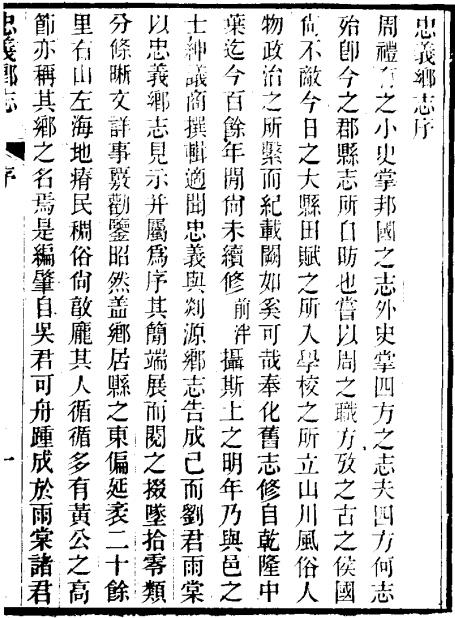 忠義鄉志序
周禮春之小史掌邦國之志外史掌四方之志夫四方何志
殆卽今之郡縣志所自昉也嘗以周之職方攷之古之侯國
尙不敵今日之大縣田賦之所入學校之所立山川風俗人
物政治之所繫而紀載闕如奚可哉奉化舊志修自乾隆中
葉迄今百餘年閒尙未續修前泮攝斯土之明年乃與邑之
士紳議商撰輯適聞忠義與剡源鄉志告成已而劉君雨棠
以忠義鄉志見示幷屬爲序其簡端展而閱之掇墜拾零類
分條晰文詳事覈勸鑒昭然盖鄉居縣之東偏延袤二十餘
里右山左海地瘠民稠俗尙敦龐其人循循多有黃公之高
節亦稱其鄉之名焉是編肇自吳君可舟踵成於雨棠諸君
忠義鄉志
序
一